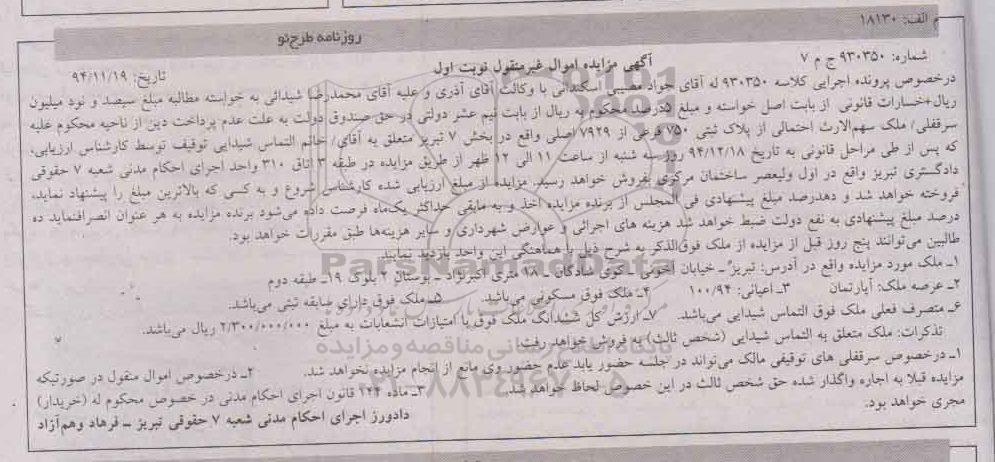 م الف: ۱۸۱۳۰
روزنامه طرح نو
شماره: ۹۳۰۳۵۰ ج م ۷
آگهی مزایده اموال غیرمنقول نوبت اول
تاریخ: ۹۴/۱۱/۱۹
درخصوص پرونده اجرایی کلاسه ۹۳۰۳۵۰ له آقای جواد مصیبی اسکندانی با وکالت آقای آذری و علیه آقای محمدرضا شیدائی به خواسته مطالبه مبلغ سیصد و نود میلیون
ریال+خسارات قانونی از بابت اصل خواسته و مبلغ ۵درصد محکوم به ریال از بابت نیم عشر دولتی در حق صندوق دولت به علت عدم پرداخت دین از ناحیه محکوم علیه
سرقفلی/ ملک سهم‌الارث احتمالی از پلاک ثبتی ۷۵۰ فرعی از ۷۹۲۹ اصلی واقع در بخش ۷ تبریز متعلق به آقای/ خانم التماس شیدایی توقیف توسط کارشناس ارزیابی،
که پس از طی مراحل قانونی به تاریخ ۹۴/۱۲/۱۸ روز سه شنبه از ساعت ۱۱ الی ۱۲ ظهر از طریق مزایده در طبقه ۳ اتاق ۳۱۰ واحد اجرای احکام مدنی شعبه ۷ حقوقی
دادگستری تبریز واقع در اول ولیعصر ساختمان مرکزی بفروش خواهد رسید. مزایده از مبلغ ارزیابی شده کارشناس شروع و به کسی که بالاترین مبلغ را پیشنهاد نماید،
فروخته خواهد شد و ده‌درصد مبلغ پیشنهادی فی المجلس از برنده مزایده اخذ و به مابقی حداکثر یک‌ماه فرصت داده می‌شود برنده مزایده به هر عنوان انصراف‌نماید ده
درصد مبلغ پیشنهادی به نفع دولت ضبط خواهد شد هزینه های اجرائی و عوارض شهرداری و سایر هزینه‌ها طبق مقررات خواهد بود.
طالبین می‌توانند پنج روز قبل از مزایده از ملک فوق‌الذکر به شرح ذیل با هماهنگی این واحد بازدید نمایند
۱ـ ملک مورد مزایده واقع در آدرس: تبریز ـ خیابان آخونی ـ کوی شادگان ـ ۱۸ متری اکبرنژاد ـ بوستان ۲ بلوک ۱۹ـ طبقه دوم
۲ـ عرصه ملک: آپارتمان ۳ـ اعیانی: ۱۰۰/۹۴ ۴ـ ملک فوق مسکونی می‌باشد. ۵ـ ملک فوق دارای سابقه ثبتی می‌باشد.
۶ـ متصرف فعلی ملک فوق التماس شیدایی می‌باشد. ۷ـ ارزش کل ششدانگ ملک فوق با امتیازات انشعابات به مبلغ ۲/۳۰۰/۰۰۰/۰۰۰ ریال می‌باشد.
تذکرات: ملک متعلق به التماس شیدایی (شخص ثالث) به فروش خواهد رفت.
۱ـ درخصوص سرقفلی های توقیفی مالک می‌تواند در جلسه حضور یابد عدم حضور وی مانع از انجام مزایده نخواهد شد. ۲ـ درخصوص اموال منقول در صورتیکه
مزایده قبلا به اجاره واگذار شده حق شخص ثالث در این خصوص لحاظ خواهد شد. ۳ـ ماده ۱۴۴ قانون اجرای احکام مدنی در خصوص محکوم له (خریدار)
مجری خواهد بود.
دادورز اجرای احکام مدنی شعبه ۷ حقوقی تبریز ـ فرهاد وهم‌آزاد
ParsNamadData
پایگاه اطلاع رسانی مناقصه و مزایده